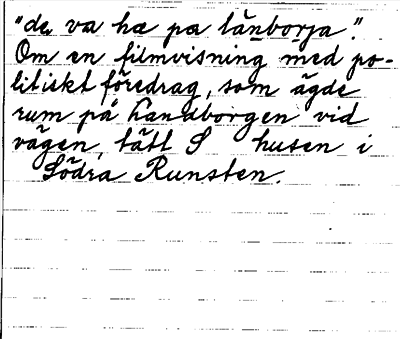 "de va hæ pa lånborja".
Om en filmvisning med po-
litiskt föredrag, som ägde
rum på Landborgen vid
vägen, tätt S husen i
Södra Runsten.